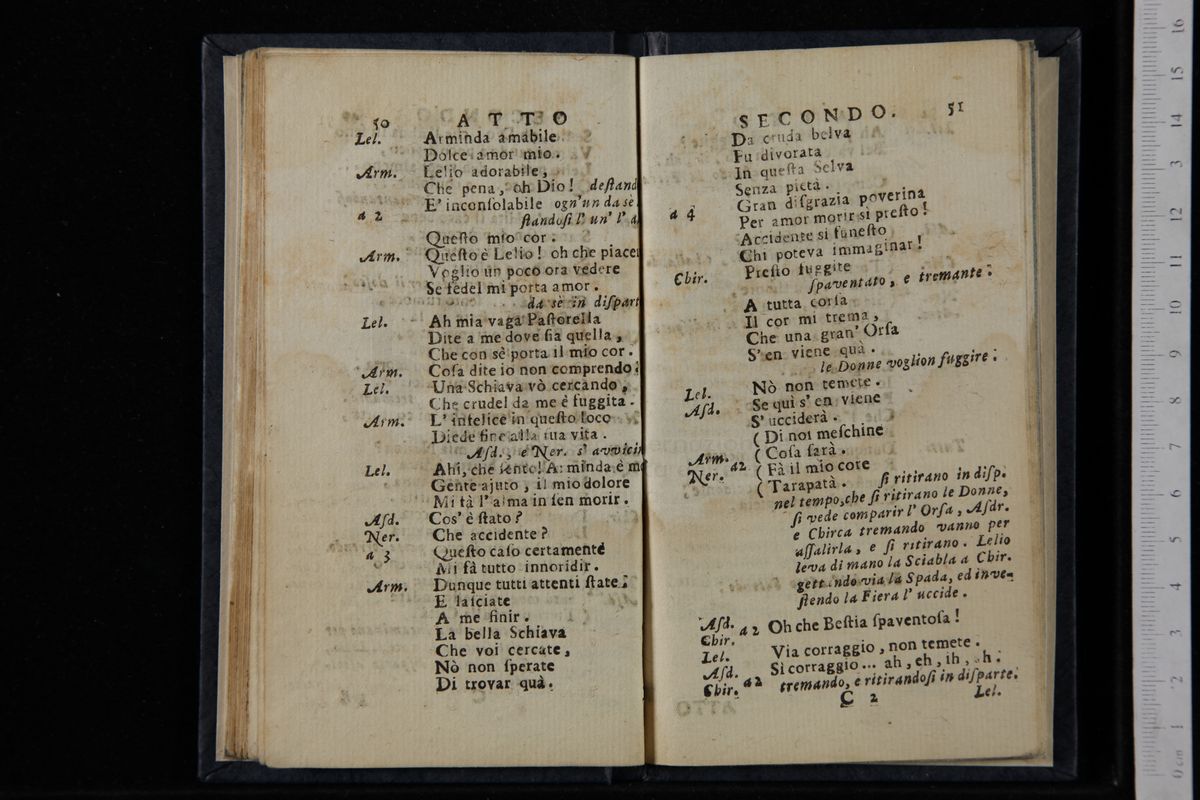 50 ATTO
Lel. Arminda amabile
Dolce amor mio.
Arm. Lelio adorabile,
Che pena, oh Dio! deſtand
E' inconſolabile ogn'un da sè
a 2 ſtandoſi l' un' l' a
Queſto mio cor.
Arm. Queſto è Lelio! oh che piacer
Voglio un poco ora vedere
Se fedel mi porta amor.
da sè in diſpart
Lel. Ah mia vaga Paſtorella
Dite a me dove ſia quella,
Che con sè porta il mio cor.
Arm. Coſa dite io non comprendo;
Lel. Una Schiava vò cercando,
Che crudel da me è fuggita.
Arm. L' infelice in queſto loco
Diede fine alla ſua vita.
Aſd., e Ner. s' avvicin
Lel. Ahi, che ſento! Arminda è mo
Gente ajuto, il mio dolore
Mi fà l' alma in ſen morir.
Aſd. Cos' è ſtato?
Ner. Che accidente?
a 3 Queſto caſo certamente
Mi fà tutto innoridir.
Arm. Dunque tutti attenti ſtate:
E laſciate
A me finir.
La bella Schiava
Che voi cercate,
Nò non ſperate
Di trovar quà.
SECONDO. 51
Da cruda belva
Fu divorata
In queſta Selva
Senza pietà.
Gran diſgrazia poverina
a 4 Per amor morir sì preſto!
Accidente sì funeſto
Chi poteva immaginar!
Chir. Preſto fuggite
ſpaventato, e tremante.
A tutta corſa
Il cor mi trema,
Che una gran' Orſa
S' en viene quà.
le Donne voglion fuggire.
Lel. Nò non temete.
Aſd. Se quì s' en viene
S' ucciderà.
( Di noi meſchine
Arm. ( Coſa ſarà.
Ner. a2 ( Fà il mio core
( Tarapatà. ſi ritirano in diſp.
nel tempo, che ſi ritirano le Donne,
ſi vede comparir l' Orſa, Aſdr.
e Chirca tremando vanno per
aſſalirla, e ſi ritirano. Lelio
leva di mano la Sciabla a Chir.
gettando via la Spada, ed inve-
ſtendo la Fiera l' uccide.
Aſd.
Chir. a 2 Oh che Beſtia ſpaventoſa!
Lel. Via corraggio, non temete.
Aſd.
Chir. a2 Sì corraggio... ah, eh, ih, oh.
tremando, e ritirandoſi in diſparte.
C 2 Lel.